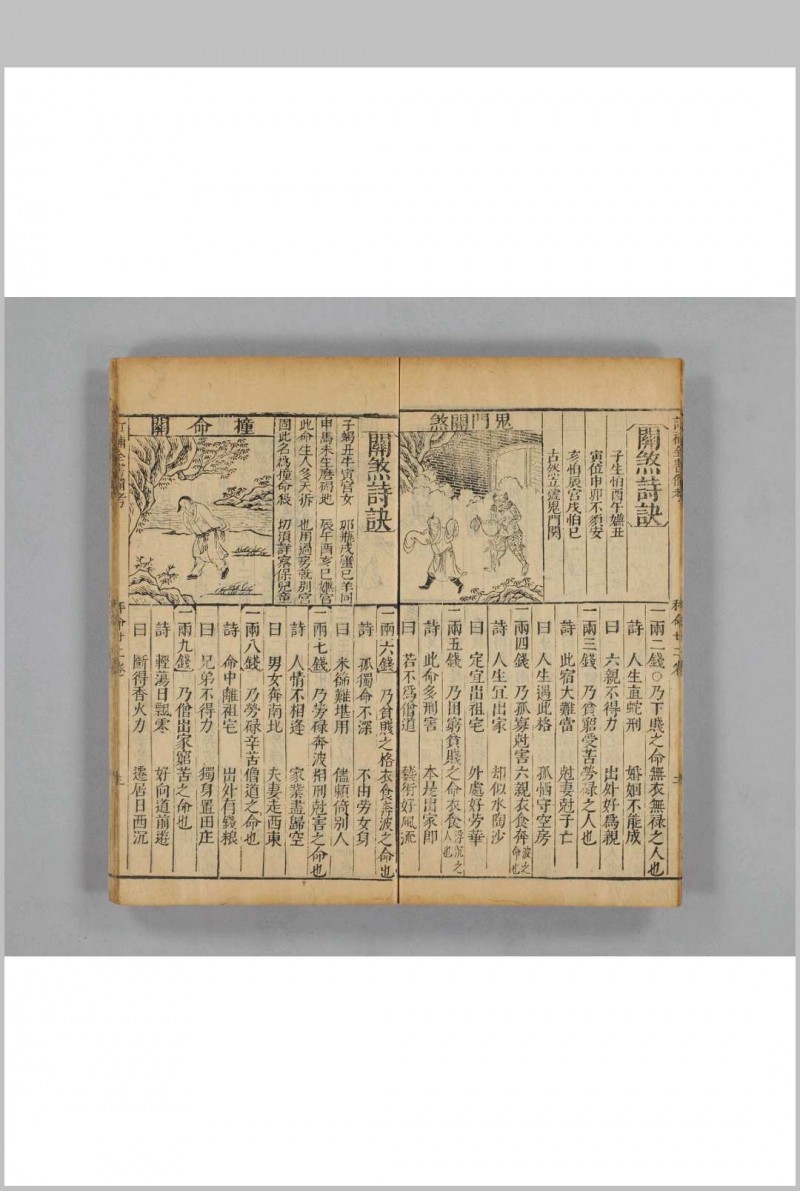 關煞詩訣
子生怕酉午嫌丑
寅位申卯不須安
亥怕辰宮戌怕巳
古然立處鬼門関
鬼門關煞
一兩二錢○乃下賤之命無衣無禄之人也
詩 人生直蛇刑 婚姻不能成
曰 六親不得力 出外好爲親
一兩三錢 乃貧窮受苦勞禄之人也
詩 此宿大難當 尅妻尅子亡
曰 人生遇此格 孤恓守空房
一兩四錢 乃孤寡尅害六親衣食奔波之命也
詩 人生冝出家 却似水陶沙
曰 定宜出祖宅 外處好勞華
一兩五錢 乃困窮貧賤之命衣食浮沉之人也
詩 此命多刑害 本是出家郎
曰 若不爲僧道 藝術好風流
關煞詩訣
申馬未生磨碭地 辰午酉亥巳嫌宮
此命生人多夭折
因此名爲撞命殺 切須詳察保兒童
撞命關
一兩六錢 乃貧賤之格衣食奔波之命也
詩 孤獨命不深 不由勞女身
曰 米篩難堪用 儘頼倚别人
一兩七錢 乃勞禄奔波相刑尅害之命也
詩 人情不相逢 家業盡歸空
曰 男女奔南北 夫妻走西東
一兩八錢 乃勞禄辛苦僧道之命也
詩 命中離祖宅 出外有錢粮
曰 兄弟不得力 獨身置田庄
一兩九錢 乃僧出家窮苦之命也
詩 輕蕩日飄寒 好向道前遊
曰 斷得香火力 遷居日西沉